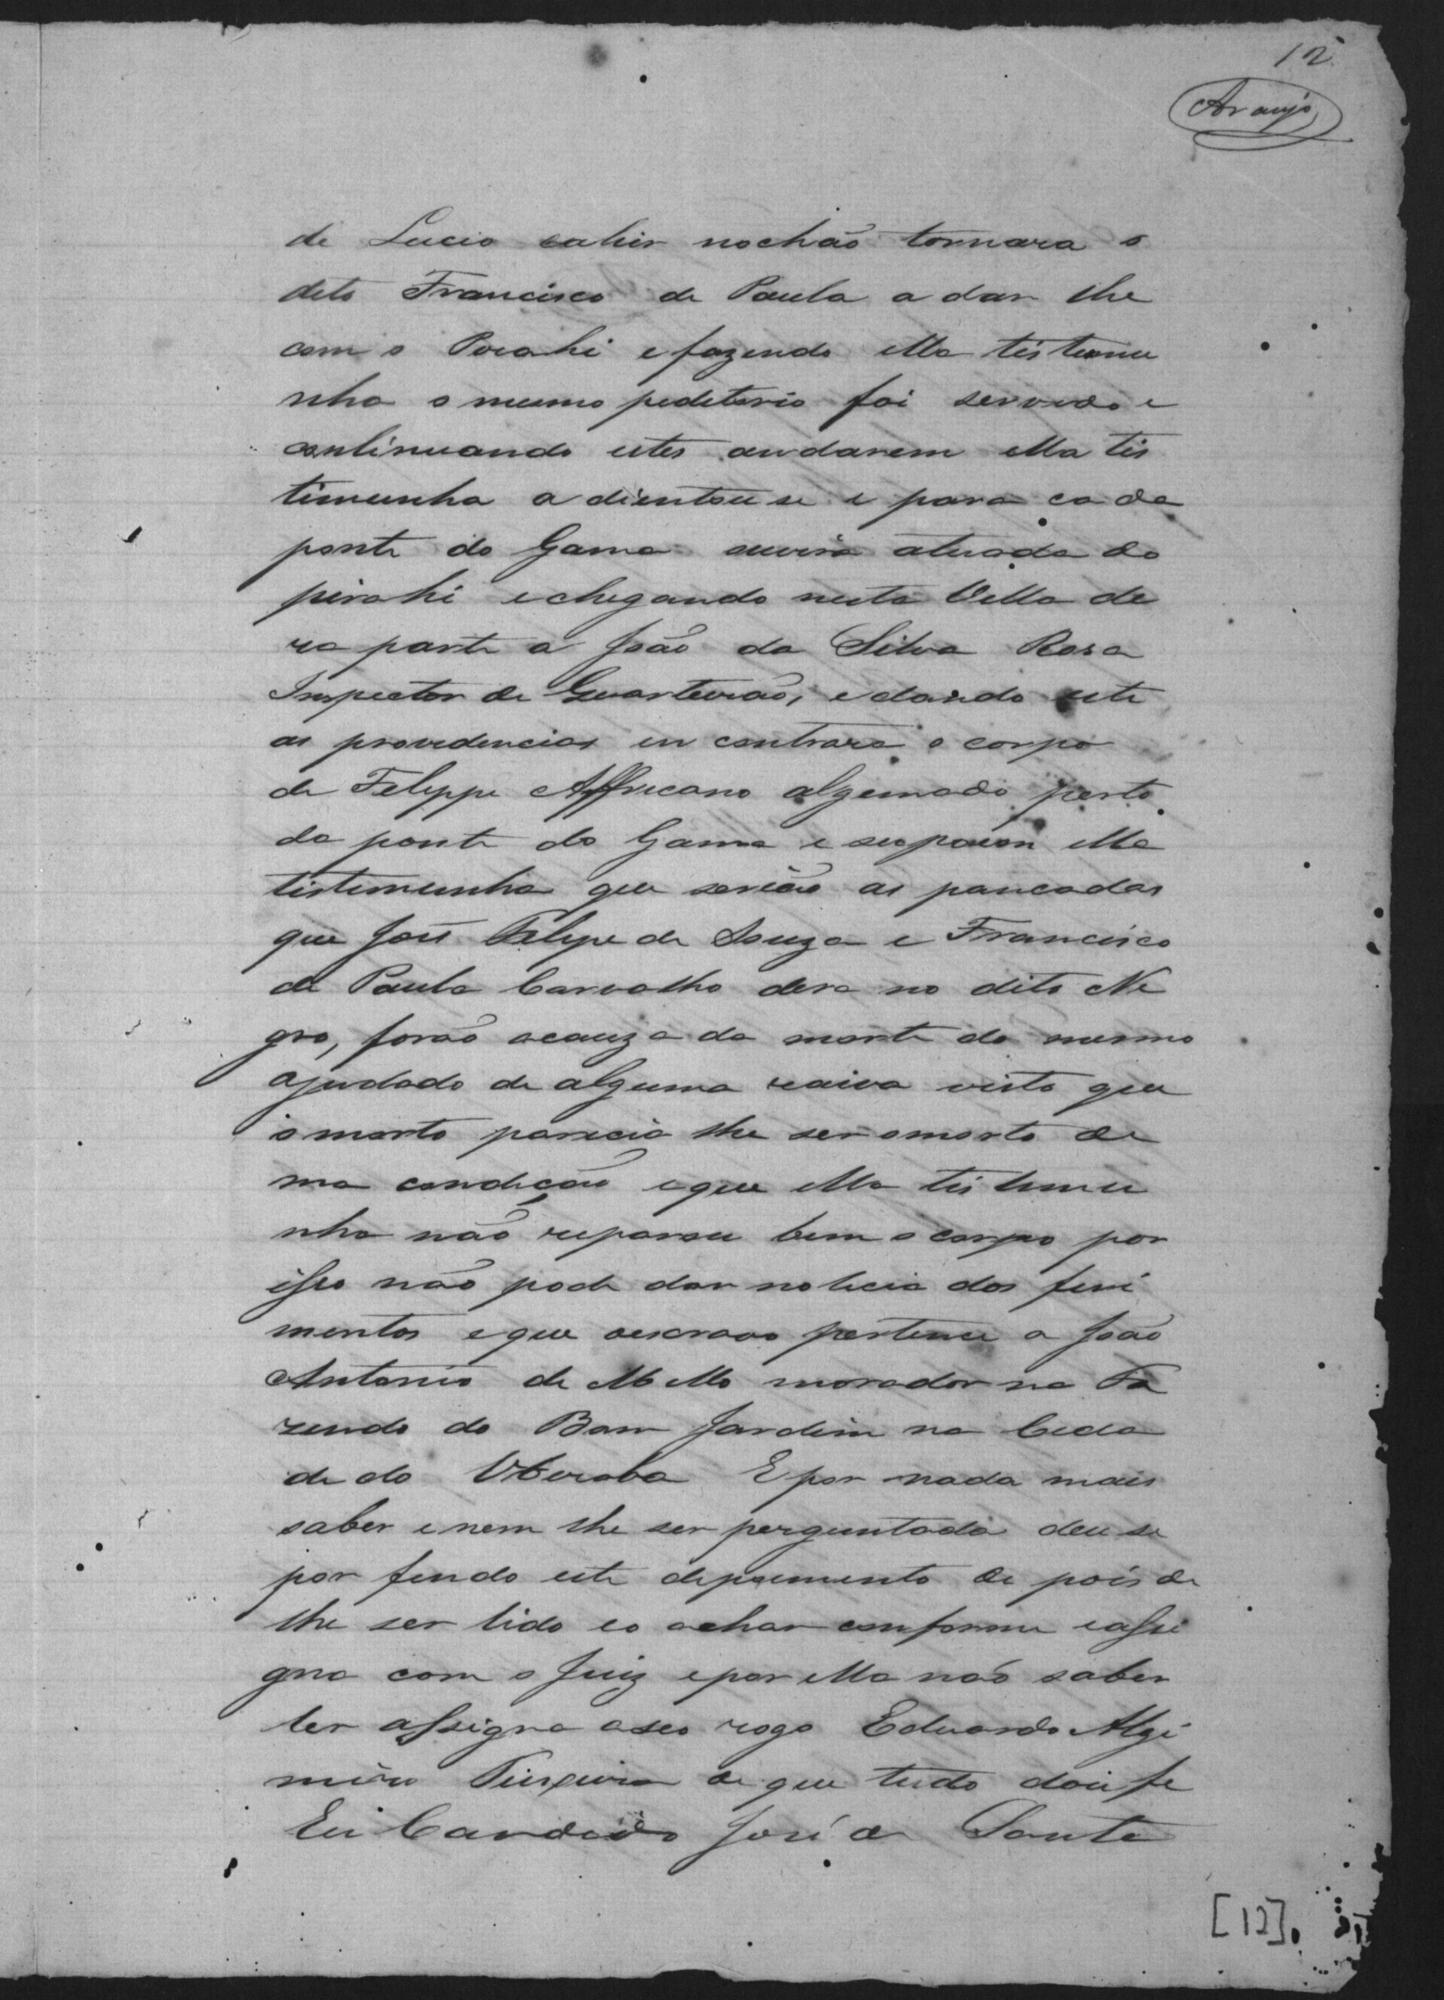 12
Araujo
de Lucio cahir nochão tornara o
dito Francisco de Paula a dar lhe
com o Pirahi e fazendo ella testemu
nha o mesmo peditorio foi servido e
continuando estes andarem ella tes
timunha a dientou se e para ca da
ponte do Gama ouvira atuada do
pirahi e chegando nesta Villa de
ra parte a João da Silva Rosa
Inspector de Quarteirão, e dando este
as providencias en contrara o corpo
de Felippe Affricano algemado perto
da ponte do Gama e supoem ella
testimunha que serião as pancadas
que José Felipe de Souza e Francisco
de Paula Carvalho dera no dito Ne
gro, forão acauza da morte do mesmo
ajudado de alguma raiva visto que
o morto parecia lhe ser omorto de
ma condição eque ella testemu
nha não reparou bem o corpo por
isso não pode dar noticia dos feri
mentos e que oescravo pertence a João
Antonio de Mello morador na Fa
zenda do Bom Jardim na Cida
de do Uberaba E por nada mais
saber e nem lhe ser perguntado deu se
por findo este depoimento de pois de
lhe ser lido eo achar conforme eassi
gna com o Juiz epor ella não saber
ler assigna aseo rogo Eduardo Algi
miro Teixeira de que tudo dou fe
Eu Candido José de Souto
[12]